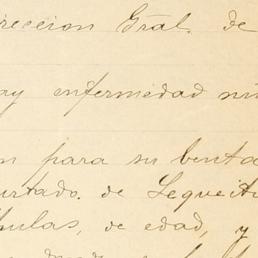 ireccion Gral. de
ay enfermedad nin
n para su benta
urtado. de Lequeiti
bulas, de edad, y